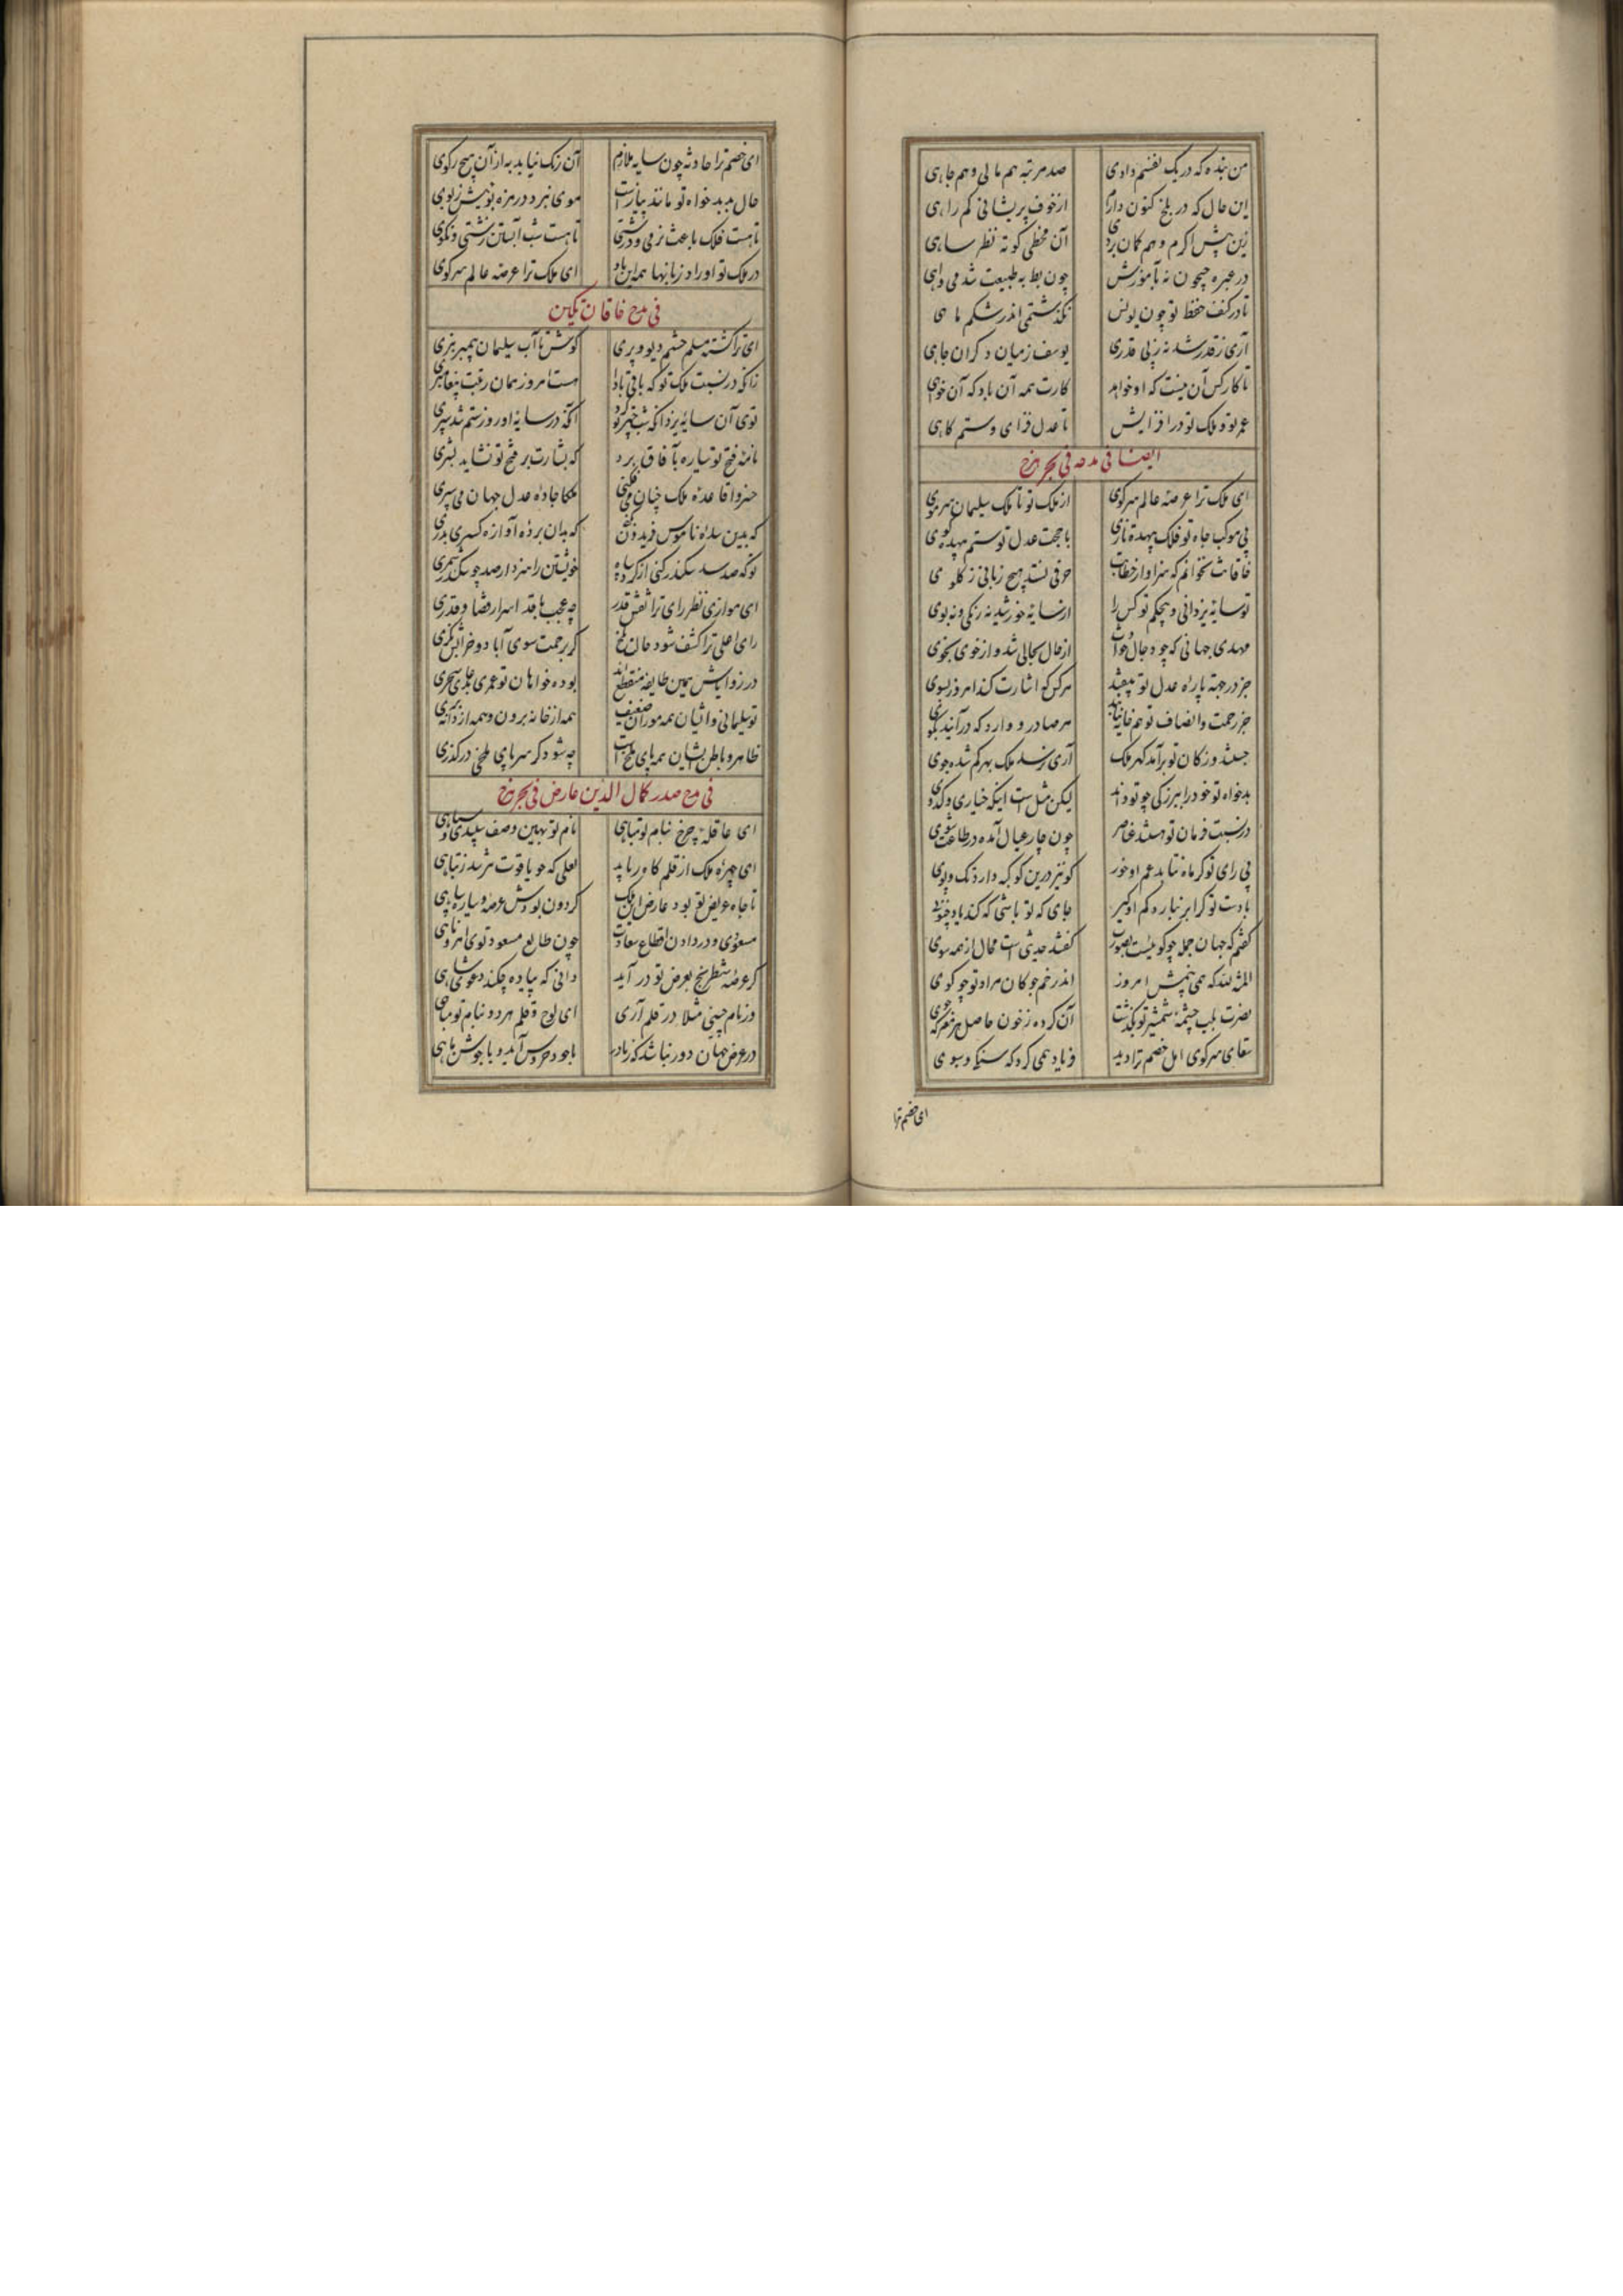 من بنده که در یک نفسم دادی صد مرتبه هم مالی و هم جاهی
این حال که در بلخ کنون دارم از خوف پریشانی کم راهی
زین پیش اگرم وهم کان بردی آن مخطی کوته نظر ساهی
در عبره جیحون نه بآموزش چون بط به طبیعت شدمی داهی
تا در کنف حفظ تو چون یونس نگذشتمی اندر شکم ماهی
آری ز قدر شد نه ز بی قدری یوسف ز میان دگران جاهی
تا کار کس آن نیست که او خواهد کارت همه آن باد که آن خواهی
عمر تو و ملک تو در افزایش تا عدل فزای و ستم کاهی
ایضا فی مدحه فی بحر هزج
ای ملک ترا عرصه عالم سرکوی از ملک تو تا ملک سلیمان سرموی
بی موکب جاه تو فلک بیهده تازی با حجت عدل تو ستم بیهده کوی
خاقانت نخوانم که سزاوار خطابت حرفی نستد هیچ زبانی ز کلوی
تو سایه یزدانی و بیحکم تو کس را از سایه خورشید نه رنکی و نه بوی
مهدی جهانی که چو دجال حوادث از حال بحالی شد و از خوی بخوی
جز در جهت پاره عدل تو نیفتد هر کس که اشارت کند امروز بسوی
جز رحمت و انصاف تو همخانه نیابند هر صادر و وارد که در آیند بکوی
جستند و ز کان تو برآمد کهر ملک آری نرسد ملک بهر کم شده جوی
بدخواه تو خود را ببزرکی چو تو داند لیکن مثل است اینکه خیاری و کدوی
در نسبت فرمان تو هستند عناصر چون چار عیال آمده در طاعت شوی
بی رای تو کر ماه نتابد غم او خور کو نیز درین کوکبه دارد تک و پوی
با دست تو کر ابر نبارد کم او کیر جای که تو باشی که کند یاد چنوی
کفتم که جهان جمله چو کوئیست بصورت کفتند حدیثی است محال از همه سوی
المنة لله که همی بینمش امروز اندر خم چوکان مراد تو چو کوی
نصرت بلب چشمه شمشیر تو بگذشت آن کرده ز خون حاصل هر معرکه جوی
سقای سرکوی امل خصم ترا دید فریاد همی کرد که سنکی و سبوی
ای خصم ترا
ای خصم ترا حادثه چون سایه ملازم آن رنک نیابد به از آن هیچ رکوی
حال بد بدخواه تو مانند پیاز است موی نبرد در مزه تویش ز توی
تا هست فلک باعث نرمی و درشتی تا هست شب آبستن زشتی و نکوی
در ملک تو اوراد زبانها همه این باد ای ملک ترا عرصه عالم سرکوی
فی مدح خاقان تکین
ای ترا کشته مسلم حشم دیو و پری کوش تا آب سلیمان پیمبر نبری
زانکه در نسبت ملک تو که باقی بادا هست امروز همان رتبت پیغامبری
توی آن سایه یزدان که شب چتر تو کرد آنکه در سایه او روز ستم شد سپری
نامه فتح تو سیاره بآفاق برد که بشارت بر فتح تو نشاید بشری
خسروا قاعده ملک چنان می فکنی ملکا جاده عدل جهان می سپری
که بدین سده ناموس فریدون بکنی که بدان پرده آوازه کسری بدری
تو که صد سد سکندر کنی از کرد سپاه خویشتن را سزد ار صد چو سکندر شمری
ای موازی نظر رای ترا نقش قدر چه عجب ناقد اسرار قضا و قدری
رای اعلی ترا کشف شود حال بلخ کر برحمت سوی آباد و خرابش نکری
در زوایاش همین طایفه منقطع اند بوده خواهان تو عمری بدعای سحری
تو سلیمانی و ایشان همه موران ضعیف همه از خانه برون و همه از دانه بری
ظاهر و باطن ایشان همه پای ملخ است چه شود کر سر پای ملخی در گذری
فی مدح صدر کمال الدین عارض فی بحر هزج
ای عاقله چرخ بنام تو مباهی نام تو بهین وصف سپیدی و سیاهی
ای چهره ملک از قلم کاه ربایت لعلی که چو یاقوت نترسد ز تباهی
تا جاه عریض تو بود عارض این ملک کردون بودش عرصه و سیاره سپاهی
مسعودی و در دادن اقطاع سعادت چون طالع مسعود توی آمر و ناهی
کر عرصه شطرنج بعرض تو در آید دانی که پیاده چکند دعوی شاهی
ور نام چنینی مثلا در قلم آری ای لوح و قلم هر دو بنام تو مباهی
در عرض جهان دور نباشد که ز یادت با جود خروس آید و با جوش ماهی